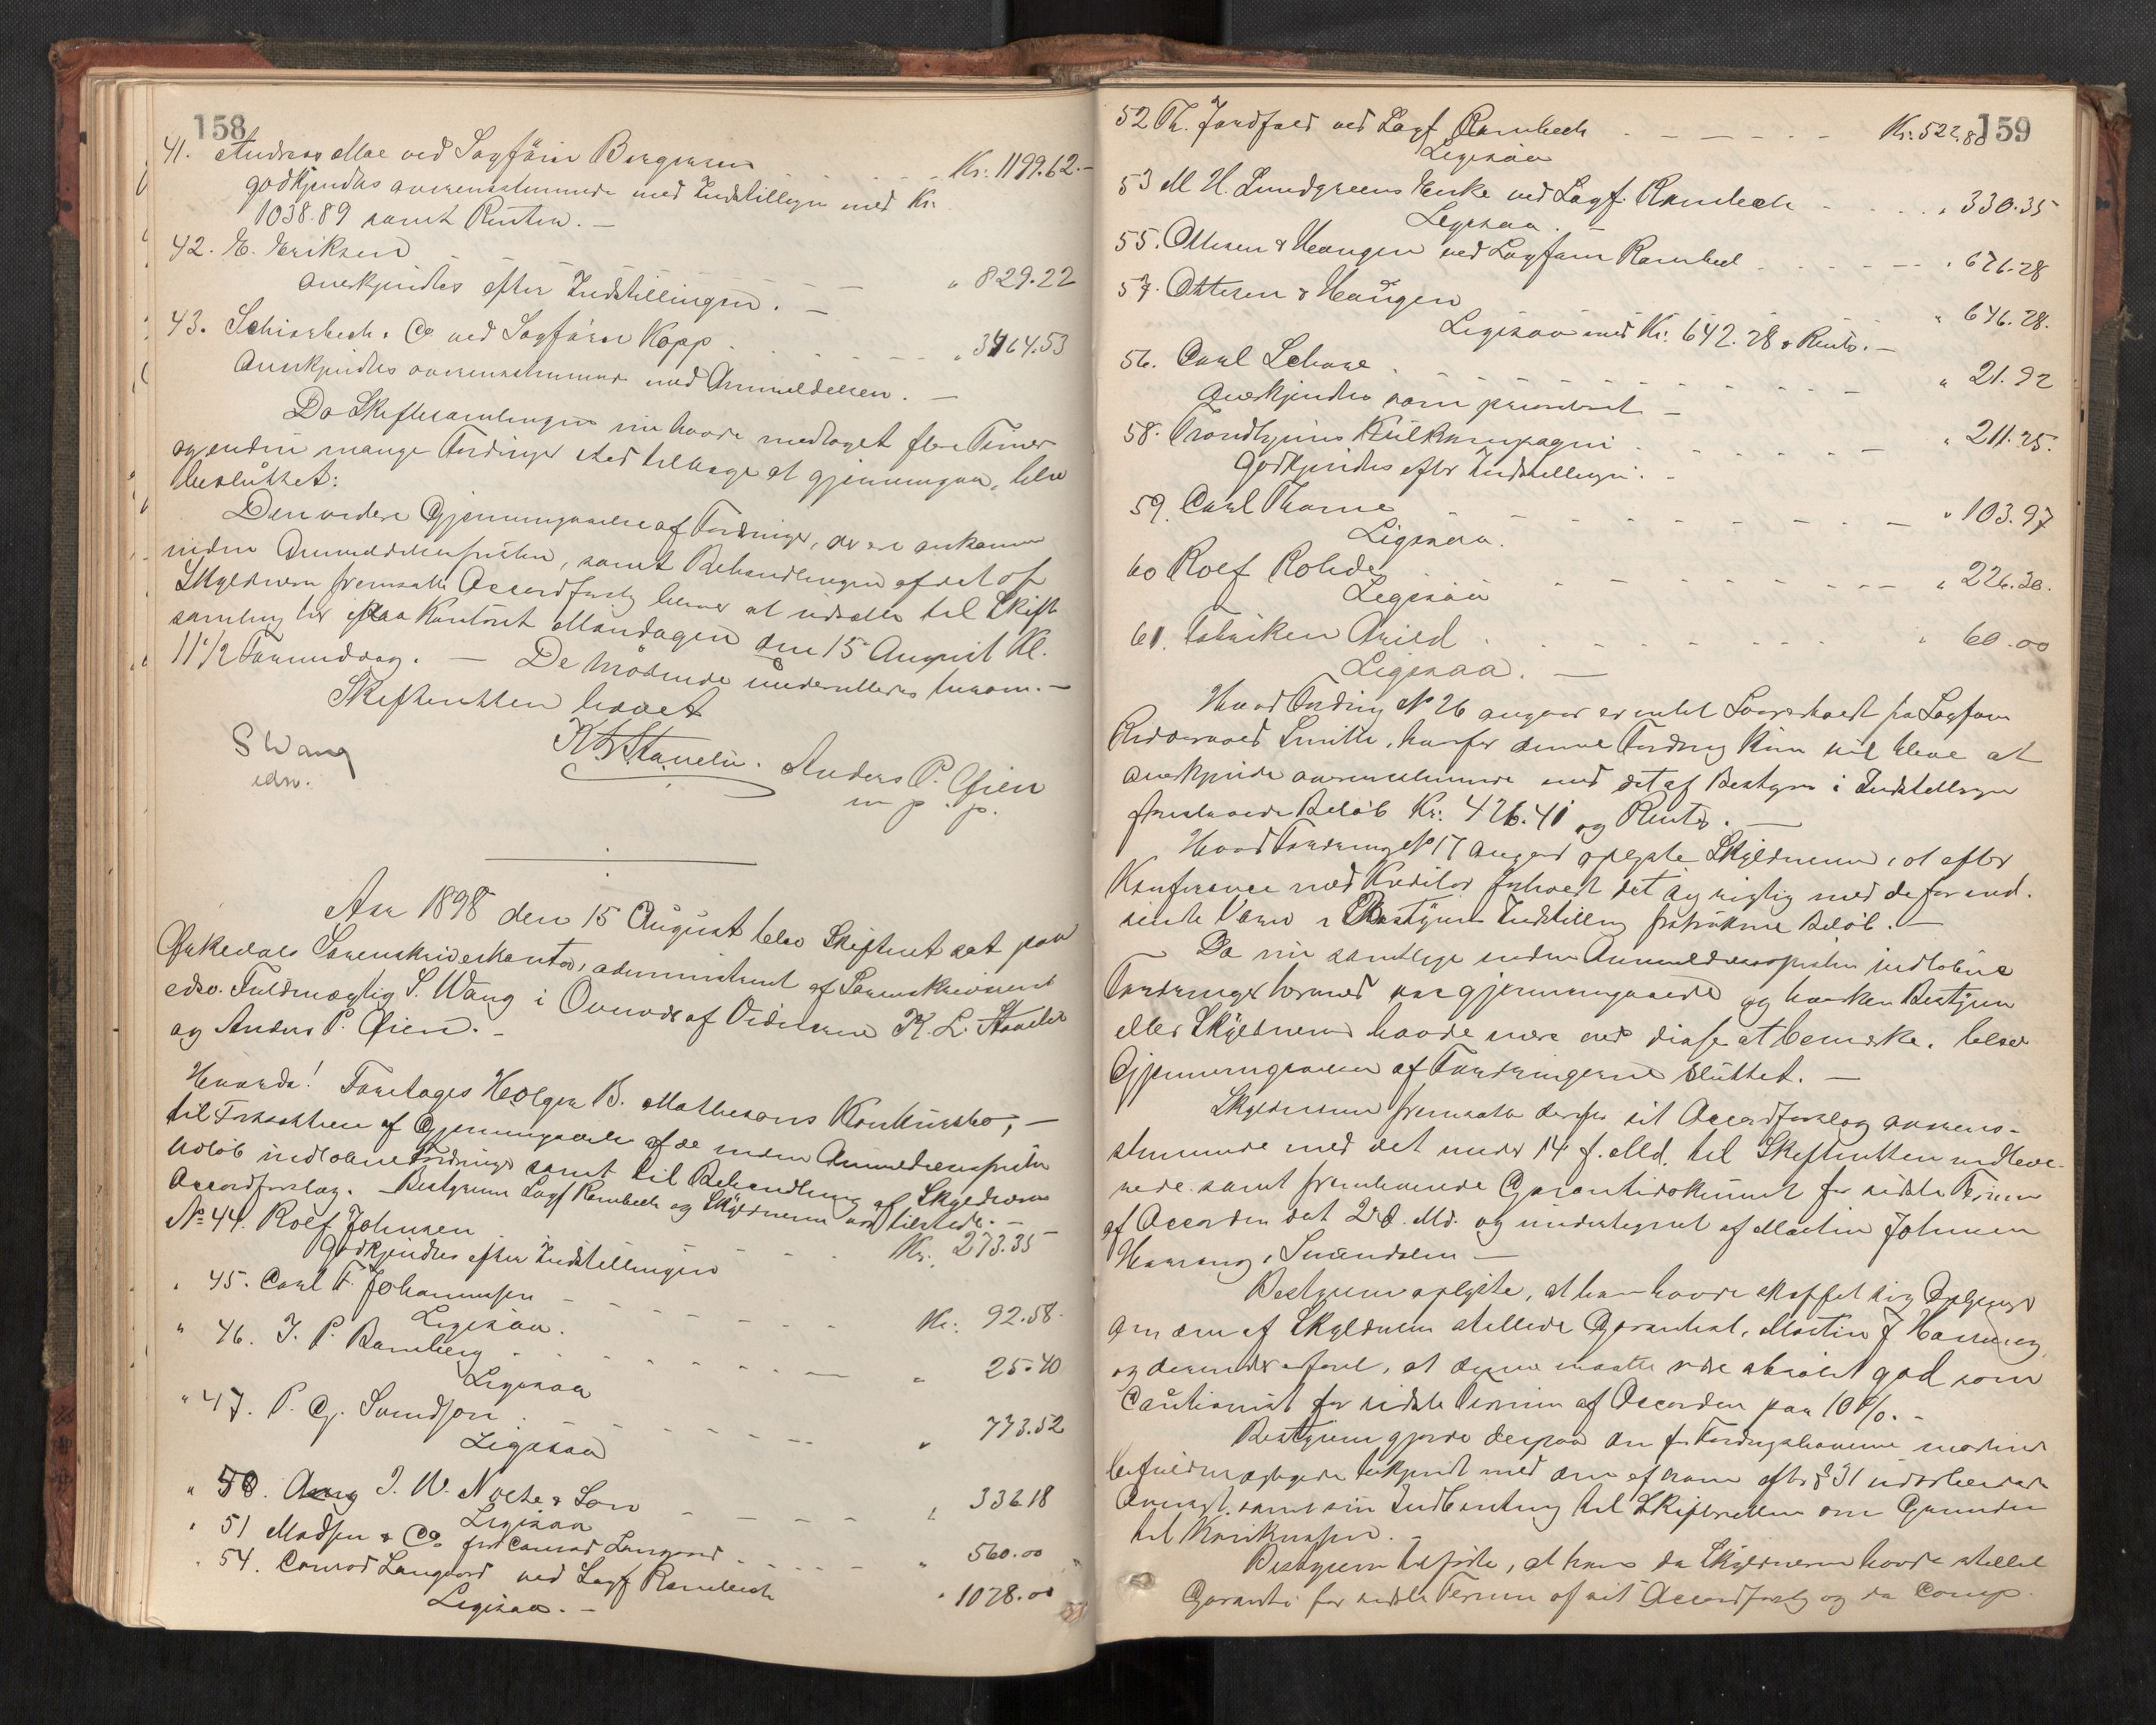 158
41. Andreas Moe ved Sagfører Bergersen Kr. 1199.62.-
godkjendtes overensstemmende med Indstillingen med Kr.
1038.89 samt Renten. -
42. E. Eriksen
anerkjendtes efter Indstillingen. - " 829.22
43. Schiørbeck & Co ved Sagfører Kopp " 3464.53
Anerkjendtes overensstemmende med Anmeldelsen. -
Da Skiftesamlingen nu havde medtaget flere Timer
og endnu mange Fordringer stod tilbage at gjennemgaa, blev
besluttet:
Den videre Gjennemgaaelse af Fordringer, der ere ankomne
inden Anmeldelsesfristen, samt Behandlingen af det af
Skyldneren fremsatte Accordforslag bliver at udsætte til Skifte-
samling her paa Kontoret Mandagen den 15 August Kl.
11 1/2 Formiddag. - De Mødende underrettedes herom. -
Skifteretten hævet
S Wang
edsv.
K L Stavelie. Anders P. Øien
m. p. p.
Aar 1898 den 15 August blev Skifteret sat paa
Orkedals Sorenskriverkontor, administreret af Sorenskriverens
edsv. Fuldmægtig S. Wang i Overvær af Vidnerne K. L. Stavelie
og Anders P. Øien. -
Hvorda! Foretoges Holger B. Mathesons Konkursbo, -
til Fortsættelse af Gjennemgaaelse af de inden Anmeldelsesfristens
Udløb indkomne Fordringer samt til Behandling af Skyldnerens
Accordforslag. - Bestyreren Sagf Rambech og Skyldneren var tilstede. -
No 44. Rolf Johnsen Kr. 273.35
Godkjendtes efter Indstillingen
" 45. Carl F. Johannesen Kr. 92.58.
Ligesaa.
" 46. J. P. Ramberg " 25.40
Ligesaa
" 47. P. G. Svendsen " 773.52
Ligesaa
" 50. J. W. Noche & Søn " 336.18
Ligesaa
" 51 Madsen & Co for Conrad Langaard " 560.00
" 54. Conrad Langaard ved Sagf Rambech " 1078.00
Ligesaa. -
159
52 Th. Jordfald ved Sagf Rambech Kr. 522.80
Ligesaa
53 M H. Lundgreens Enke ved Sagf. Rambech " 330.35
Ligesaa.
55. Ottesen & Haugen ved Sagfører Rambech " 676.28
57. Ottesen & Haugen " 646.28.
Ligesaa med Kr. 642.28 & Rente. -
56. Carl Schare " 21.92
Anerkjendtes som prioriteret -
58. Trondhjems Kulkompagni " 211.25.
Godkjendtes efter Indstillingen. -
59. Carl Thorne " 103.97
Ligesaa.
60 Rolf Rohde " 226.30.
Ligesaa
61. Fabriken Arild " 60.00
Ligesaa. -
Hvad Fordring No 26 angaar er intet Svar havt fra Sagfører
Riddervold Smith, hvorfor denne Fordring kun vil blive at
anerkjende overensstemmende med det af Bestyreren i Indstillingen
foreslaaede Beløb Kr. 426.41 og Rente. -
Hvad Fordring No 17 angaar oplyste Skyldneren, at efter
Konferance med Kreditor forholdt det sig rigtig med de for ind-
sendte Varer i Bestyrerens Indstilling fratrukne Beløb. -
Da nu samtlige inden Anmeldelsesfristen indkomne
Fordringer hermed var gjennemgaaede og hverken Bestyreren
eller Skyldneren havde mere ved disse at bemærke, blev
Gjennemgaaelsen af Fordringerne sluttet. -
Skyldneren fremsatte derefter sit Accordforslag overens-
stemmende med det under 14 f. Md. til Skifteretten indleve-
rede samt fremleverede Garantidokument for sidste Termin
af Accorden dat 2 d. Md. og undertegnet af Martin Johnsen
Hammeng, Surendalen -
Bestyreren oplyste, at han havde skaffet sig Oplysninger
om den af Skyldneren stillede Garantist, Martin J Hammeng,
og derunder erfaret, at denne maatte være absolut god som
Cautionist for sidste Termin af Accorden paa 10 %. -
Bestyreren gjorde derpaa den for Fordringshaverne mødende
befuldmægtigede bekjendt med den af ham efter § 31 udarbeidede
Oversigt, samt sin Indberetning til Skifteretten om Grunden
til Konkursen. -
Bestyreren tilføiede, at han da Skyldneren havde stillet
Garanti for sidste Termin af sit Accordforslag og da Comp-